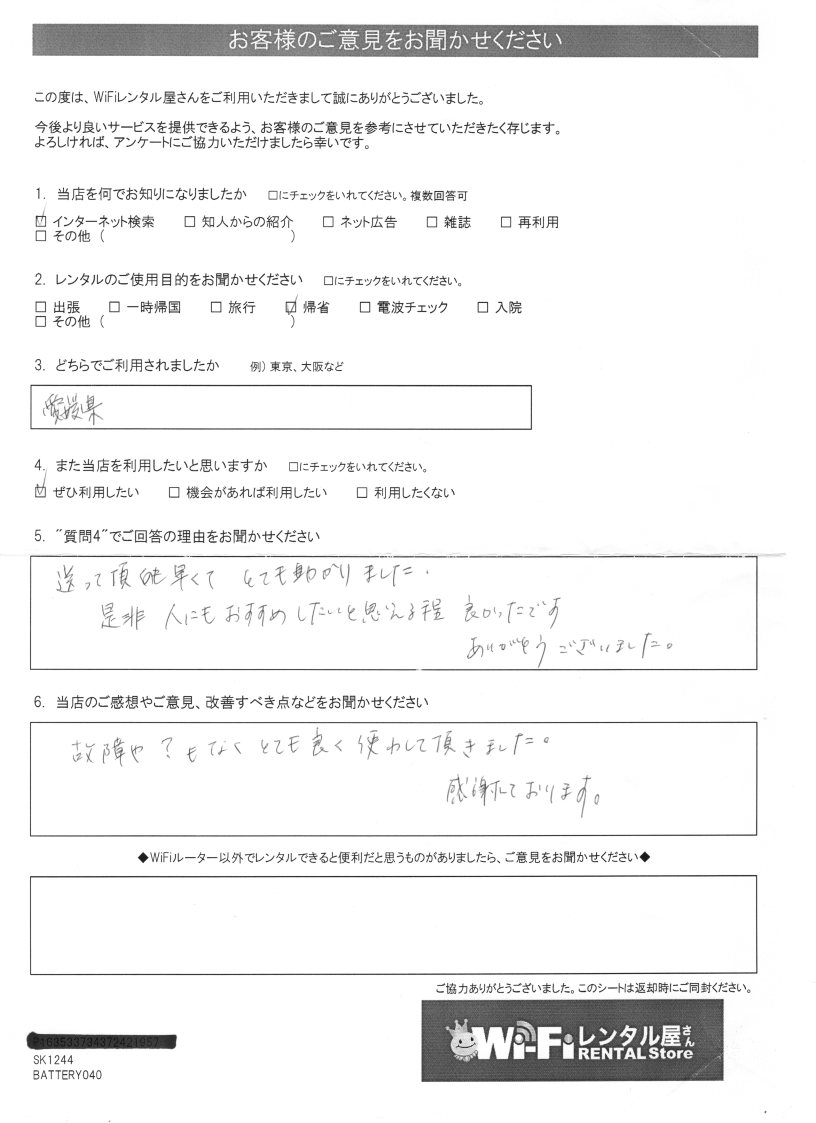 お客様のご意見をお聞かせください
この度は、WiFiレンタル屋さんをご利用いただきまして誠にありがとうございました。
今後より良いサービスを提供できるよう、お客様のご意見を参考にさせていただきたく存じます。
よろしければ、アンケートにご協力いただけましたら幸いです。
1. 当店を何でお知りになりましたか □にチェックをいれてください。複数回答可
☑ インターネット検索 □ 知人からの紹介 □ ネット広告 □ 雑誌 □ 再利用
□ その他 ( )
2. レンタルのご使用目的をお聞かせください □にチェックをいれてください。
□ 出張 □ 一時帰国 □ 旅行 ☑ 帰省 □ 電波チェック □ 入院
□ その他 ( )
3. どちらでご利用されましたか 例) 東京、大阪など
愛媛県
4. また当店を利用したいと思いますか □にチェックをいれてください。
☑ ぜひ利用したい □ 機会があれば利用したい □ 利用したくない
5. "質問4"でご回答の理由をお聞かせください
送って頂 早くて とても助かりました.
是非 人にもおすすめしたいと思える程 良かったです
ありがとうございました。
6. 当店のご感想やご意見、改善すべき点などをお聞かせください
故障や?もなくとても良く使わして頂きました。
感謝しております。
◆WiFiルーター以外でレンタルできると便利だと思うものがありましたら、ご意見をお聞かせください◆
ご協力ありがとうございました。このシートは返却時にご同封ください。
Wi-Fiレンタル屋さん
RENTAL Store
SK1244
BATTERY040